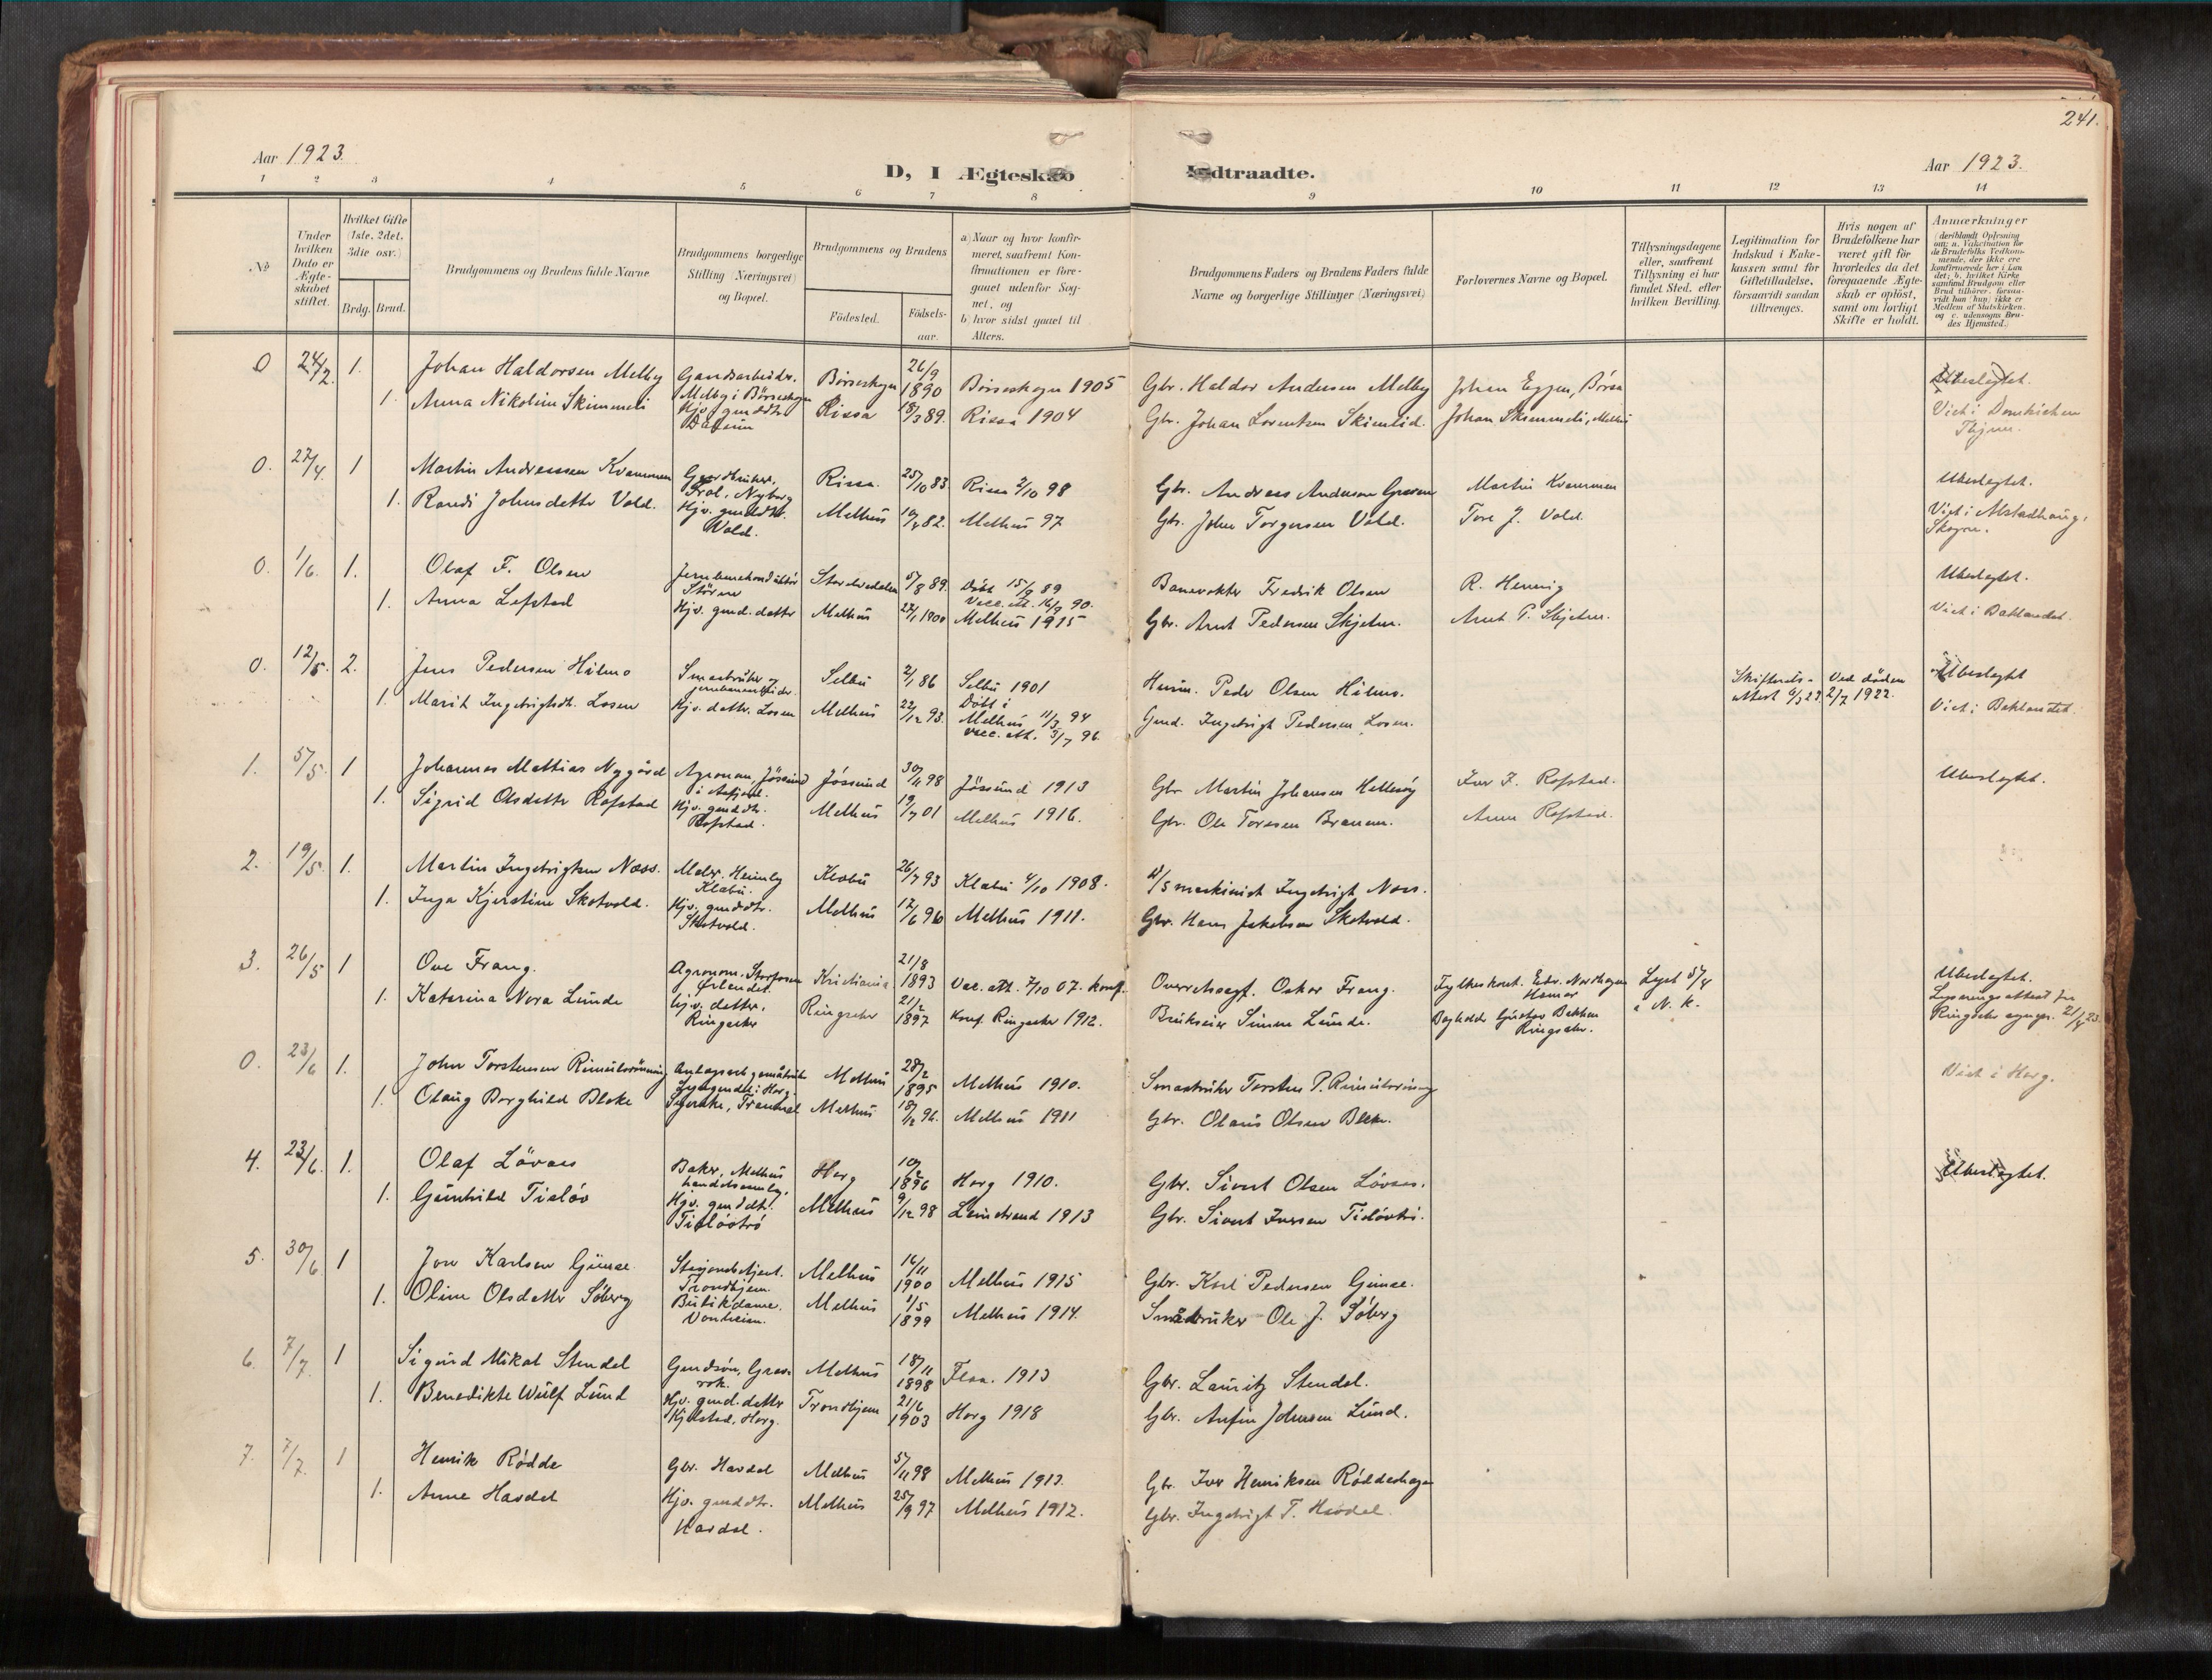 241.
Aar 1923.
D, I Ægteskab
Indtraadte.
Aar 1923.
1 2 3 4 5 6 7 8 9 10 11 12 13 14
No
Under hvilken Dato er Ægteskabet stiftet.
Hvilket Gifte (1ste, 2det, 3die osv.)
Brdg. Brud.
Brudgommens og Brudens fulde Navne
Brudgommens borgerlige Stilling (Næringsvei) og Bopæl.
Brudgommens og Brudens
Födested.
Födselsaar.
a) Naar og hvor konfirmeret, saafremt Konfirmationen er foregaaet udenfor Sognet, og
b) hvor sidst gaaet til Alters.
Brudgommens Faders og Brudens Faders fulde Navne og borgerlige Stillinger (Næringsvei)
Forlovernes Navne og Bopæl.
Tillysningsdagene eller, saafremt Tillysning ei har fundet Sted, efter hvilken Bevilling.
Legitimation for Indskud i Enkekassen samt for Giftetilladelse, forsaavidt saadan tiltrænges.
Hvis nogen af Brudefolkene har været gift för hvorledes da det foregaaende Ægteskab er oplöst, samt om lovligt Skifte er holdt.
Anmærkninger
(deriblandt Oplysning om: a. Vakcination for de Brudefolks Vedkommende, der ikke ere konfirmerede her i Landet; b. hvilket Kirkesamfund Brudgom eller Brud tilhörer, forsaavidt han (hun) ikke er Medlem af Statskirken, og c. udensogns Brudes Hjemsted.)
0 24/2. 1. Johan Haldorsen Melby Gaardsarbeider. Melby i Börseskogn Börseskogn 26/9 1890 Börseskogn 1905 Gbr. Haldor Andersen Melby Johan Eggen, Börsa Ubeslegtet.
1. Anna Nikoline Skimmeli Hjv. gaarddtr. Rissa 18/3 89. Rissa 1904 Gbr. Johan Lorentsen Skimlid. Johan Skimmeli, Melhus Viet i Domkirken
0. 27/4 1 Martin Andreassen Kvammen Gaardbruker, Frol, Nyborg Rissa. 25/10 83 Rissa 2/10 98 Gbr. Andreas Andersen Martin Kvammen Ubeslegtet.
1. Randi Johnsdatter Vold. Hjv. gaarddtr. Vold. Melhus 10/4 82. Melhus 97 Gbr. John Torgersen Vold. Tore J. Vold. Viet i Alstadhaug, Skogn.
0. 1/6. 1. Olaf F. Olsen Jernbanekonduktör Stören Storelvedalen 5/8 89. Döbt 15/9 89 Vacc. att. 16/9 90. Banevokter Fredrik Olsen R. Hennig Ubeslegtet.
1. Anna Lefstad Hjv. gmd. datter Melhus 27/1 1900 Melhus 1915 Gbr. Arnt Pedersen Skjetne. Arnt P. Skjetne. Viet i Baklandet.
0. 12/5. 2. Jens Pedersen Hilmo Smaabruker og jernbanearbeider. Selbu 2/1 86 Selbu 1901 Husm. Peder Olsen Hilmo. Skifteretsattest 6/3 23 Ved döden 2/7 1922. Ubeslegtet
1. Marit Ingebrigtsdt. Losen Hjv. dattr. Losen Melhus 22/12 93. Döbt i Melhus 11/3 94 vacc. att. 3/7 96. Gmd. Ingebrigt Pedersen Losen. Viet i Baklandet.
1. 5/5. 1 Johannes Mathias Nygård Agronom, Jössund i Aafjord. Jössund 30/11 98 Jössund 1913 Gbr Martin Johansen Hellesöy Ivar I. Rofstad. Ubeslegtet.
1. Sigrid Olsdatter Rofstad Hjv. gaarddtr. Rofstad. Melhus 19/7 01 Melhus 1916. Gbr. Ole Toresen Braaen. Arne Rofstad.
2. 19/5. 1. Martin Ingebrigtsen Næss. Maler. Heimly Klæbu. Klæbu 26/7 93 Klæbu 4/10 1908. d/s maskinist Ingebrigt Næss.
1. Inga Kjerstine Skotvold. Hjv. gaarddtr. Skotvold. Melhus 12/6 90 Melhus 1911. Gbr. Hans Jakobsen Skotvold.
3. 26/5 1 Ove Frang. Agronom. Storfosen Örlandet. Kristiania 21/8 1893 Vac. att. 7/10 07. Konf. Overretssagf. Oskar Frang. Fylkeskont. Edv. Nordhagen Hamar Lyst 5/4 i N. k. Ubeslegtet.
1. Katarina Nora Lunde Hjv. datter, Ringsaker Ringsaker 21/2 1897 Konf. Ringsaker 1912. Brukseier Simen Lunde. Gustav Bakken Ringsaker. Lysningsattest fra Ringsaker sognepr. 21/4 23.
0. 23/6 1. John Torstensen Rimulsrönning Anlægsgartner Melhus 28/2 1895 Melhus 1910. Smaabruker Torsten P. Rimulsrönning Viet i Horg.
1. Olaug Borghild Bleke Sypike, Melhus 18/12 96. Melhus 1911 Gbr. Olaus Olsen Bleke.
4. 23/6. 1. Olaf Lövaas Baker, Melhus handelsamlag, Horg 10/2 1896 Horg 1910. Gbr. Sivert Olsen Lövaas. Ubeslegtet.
1. Gunhild Tislöv Hjv. gaarddtr. Tislövtrö Melhus 9/12 98 Leinstrand 1913 Gbr. Sivert Iversen Tislövtrö.
5. 30/6 1 Jon Karlsen Gimse Stasjonsbetjent. Trondhjem. Melhus 16/11 1900 Melhus 1915 Gbr. Karl Pedersen Gimse.
1. Oline Olsdatter Söberg Butikdame. Vonheim. Melhus 1/5 1899 Melhus 1914. Småbruker Ole J. Söberg
6. 7/7. 1 Sigurd Mikal Stendal Gaardsön, Melhus 18/11 1898 Flaa. 1913 Gbr. Lauritz Stendal.
1. Benedikte Wulf Lund Hjv. gmd. datter Kjelstad, Horg. Trondhjem 21/6 1903 Horg 1918 Gbr. Anfin Johnsen Lund.
7. 7/7. 1 Henrik Rödde Gbr. Havdal Melhus 5/11 98 Melhus 1913. Gbr. Ivar Henriksen Röddeshagen
1. Anne Havdal Hjv. gaarddtr. Havdal. Melhus 25/9 97 Melhus 1912. Gbr. Ingebrigt T. Havdal.